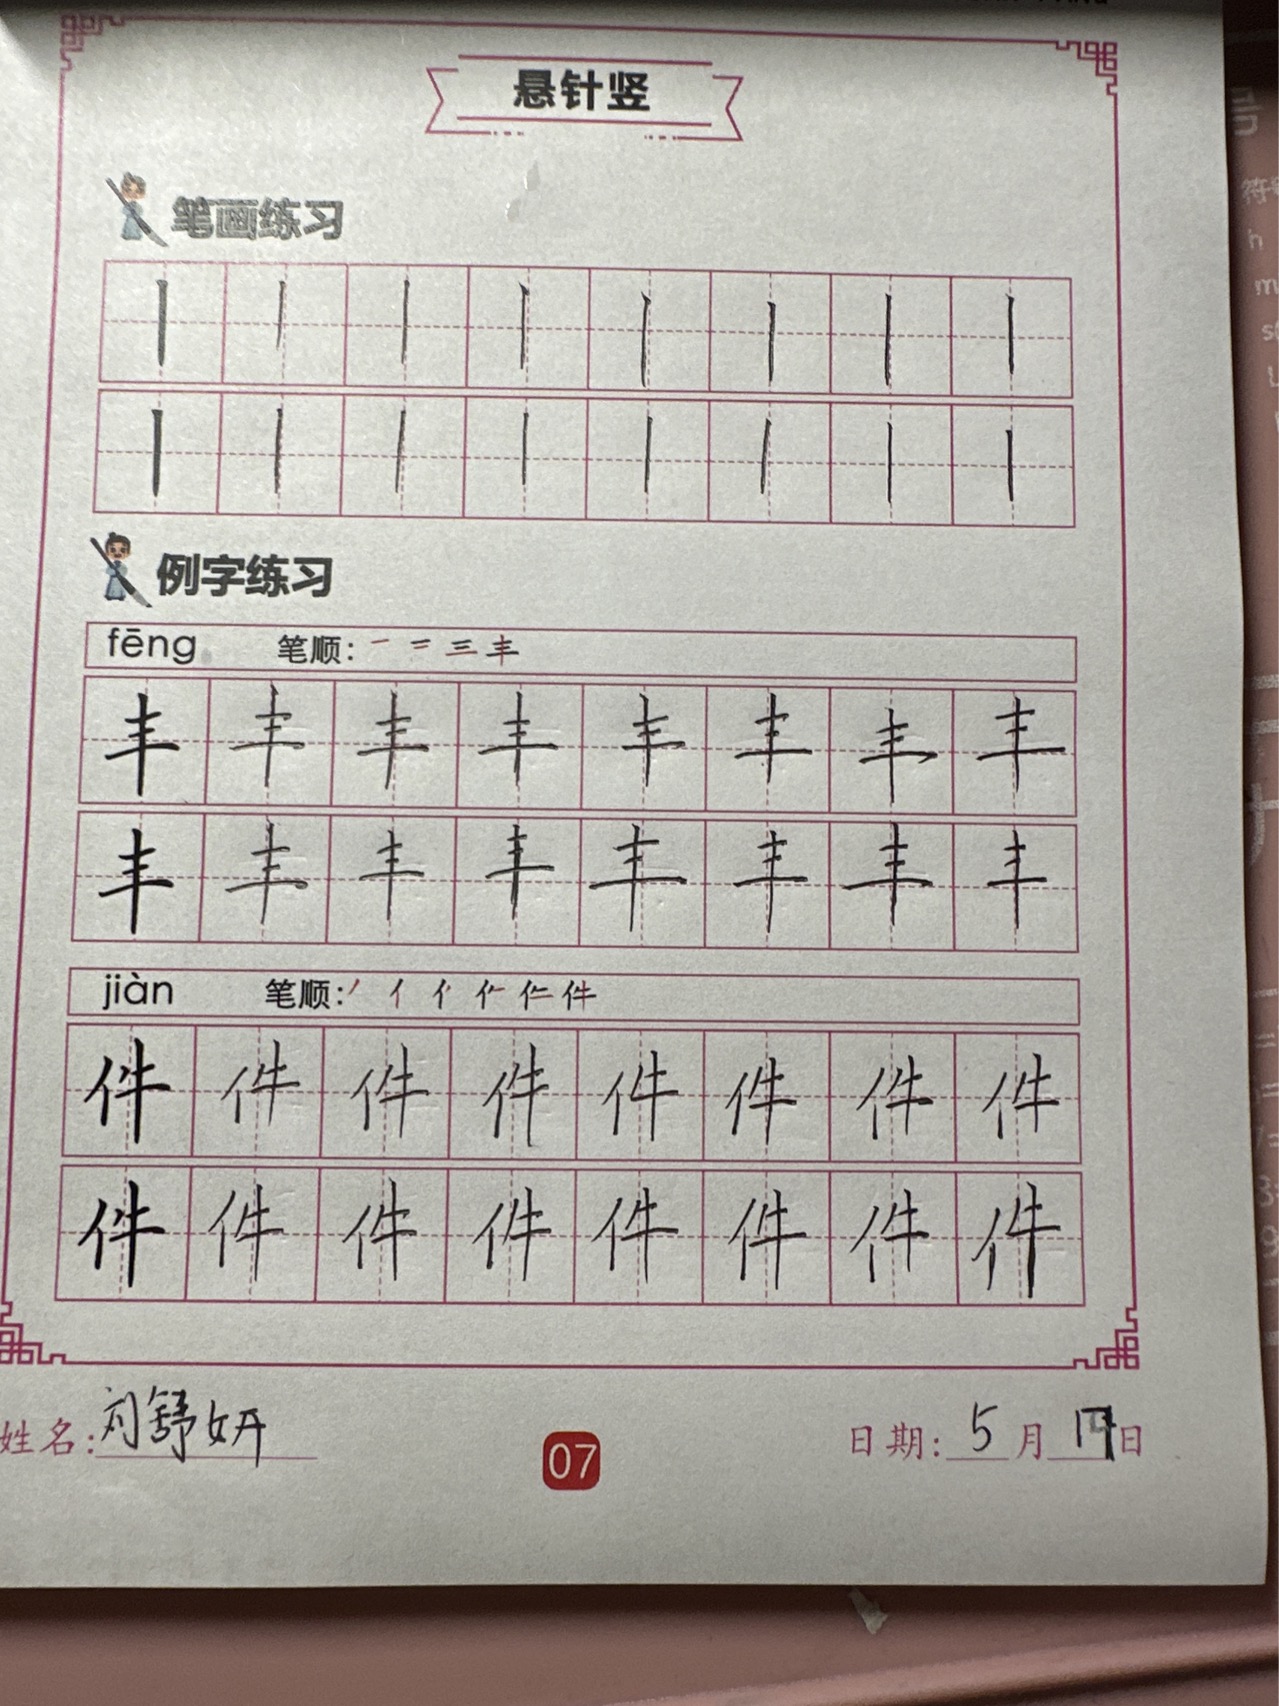 悬针竖
笔画练习
丨 丨 丨 丨 丨 丨 丨 丨
丨 丨 丨 丨 丨 丨 丨 丨
例字练习
fēng 笔顺: 一 二 三 丰
丰 丰 丰 丰 丰 丰 丰 丰
丰 丰 丰 丰 丰 丰 丰 丰
jiàn 笔顺: 丿 亻 件
件 件 件 件 件 件 件 件
件 件 件 件 件 件 件 件
姓名: 刘舒妍 07 日期: 5月 日
号